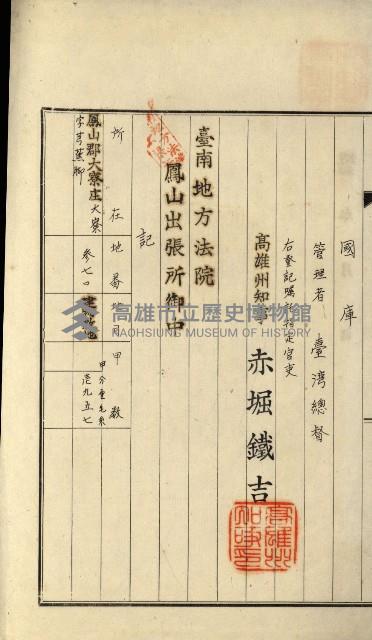 國庫
管理者 臺灣總督
右登記囑託指定官吏
高雄州知事 赤堀鐵吉
臺南地方法院
鳳山出張所御中
記
所在地番地目甲數
鳳山郡大寮庄大寮
字芎蕉脚
參七〇
建物敷地
甲分厘毛糸
壱九五七
高雄市立歷史博物館
KAOHSIUNG MUSEUM OF HISTORY
高雄州知事印